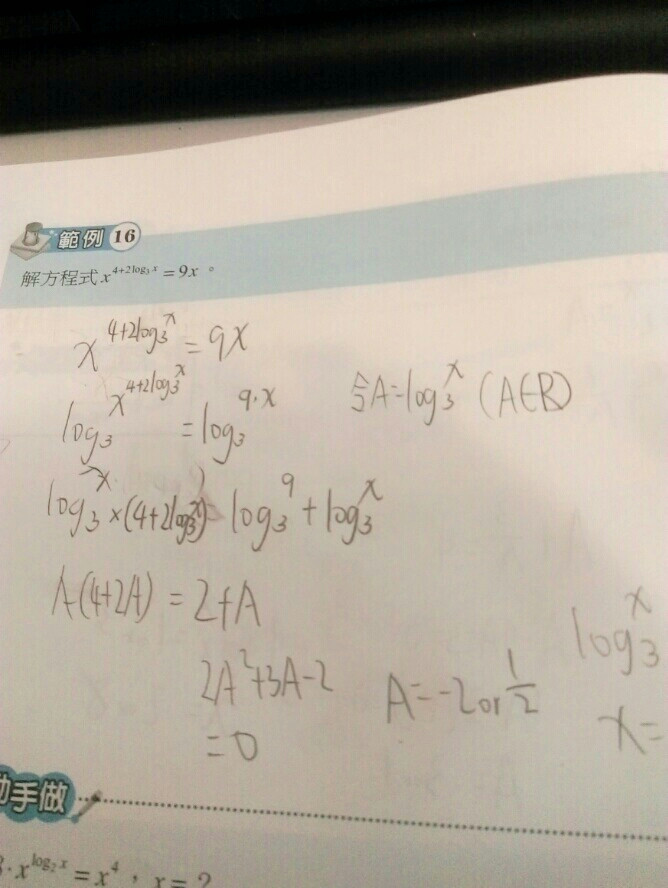 範例 16
解方程式 x^{4+2log₃x} = 9x。
x^{4+2log₃x} = 9x
log₃x^{4+2log₃x} = log₃9·x 令A=log₃x (A∈R)
log₃x×(4+2log₃x) = log₃9+log₃x
A(4+2A) = 2+A
2A²+3A-2 A=-2 or 1/2 log₃x
=0 x=
動手做
x^{log₂x} = x⁴，x=?